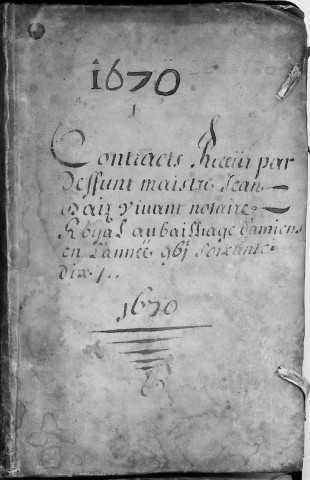 1670
Contracts Receü par
Deffunt maistre Jean
vivant notaire
Royal au bailliage damiens
en Lannée 16c soixante
dix
1670